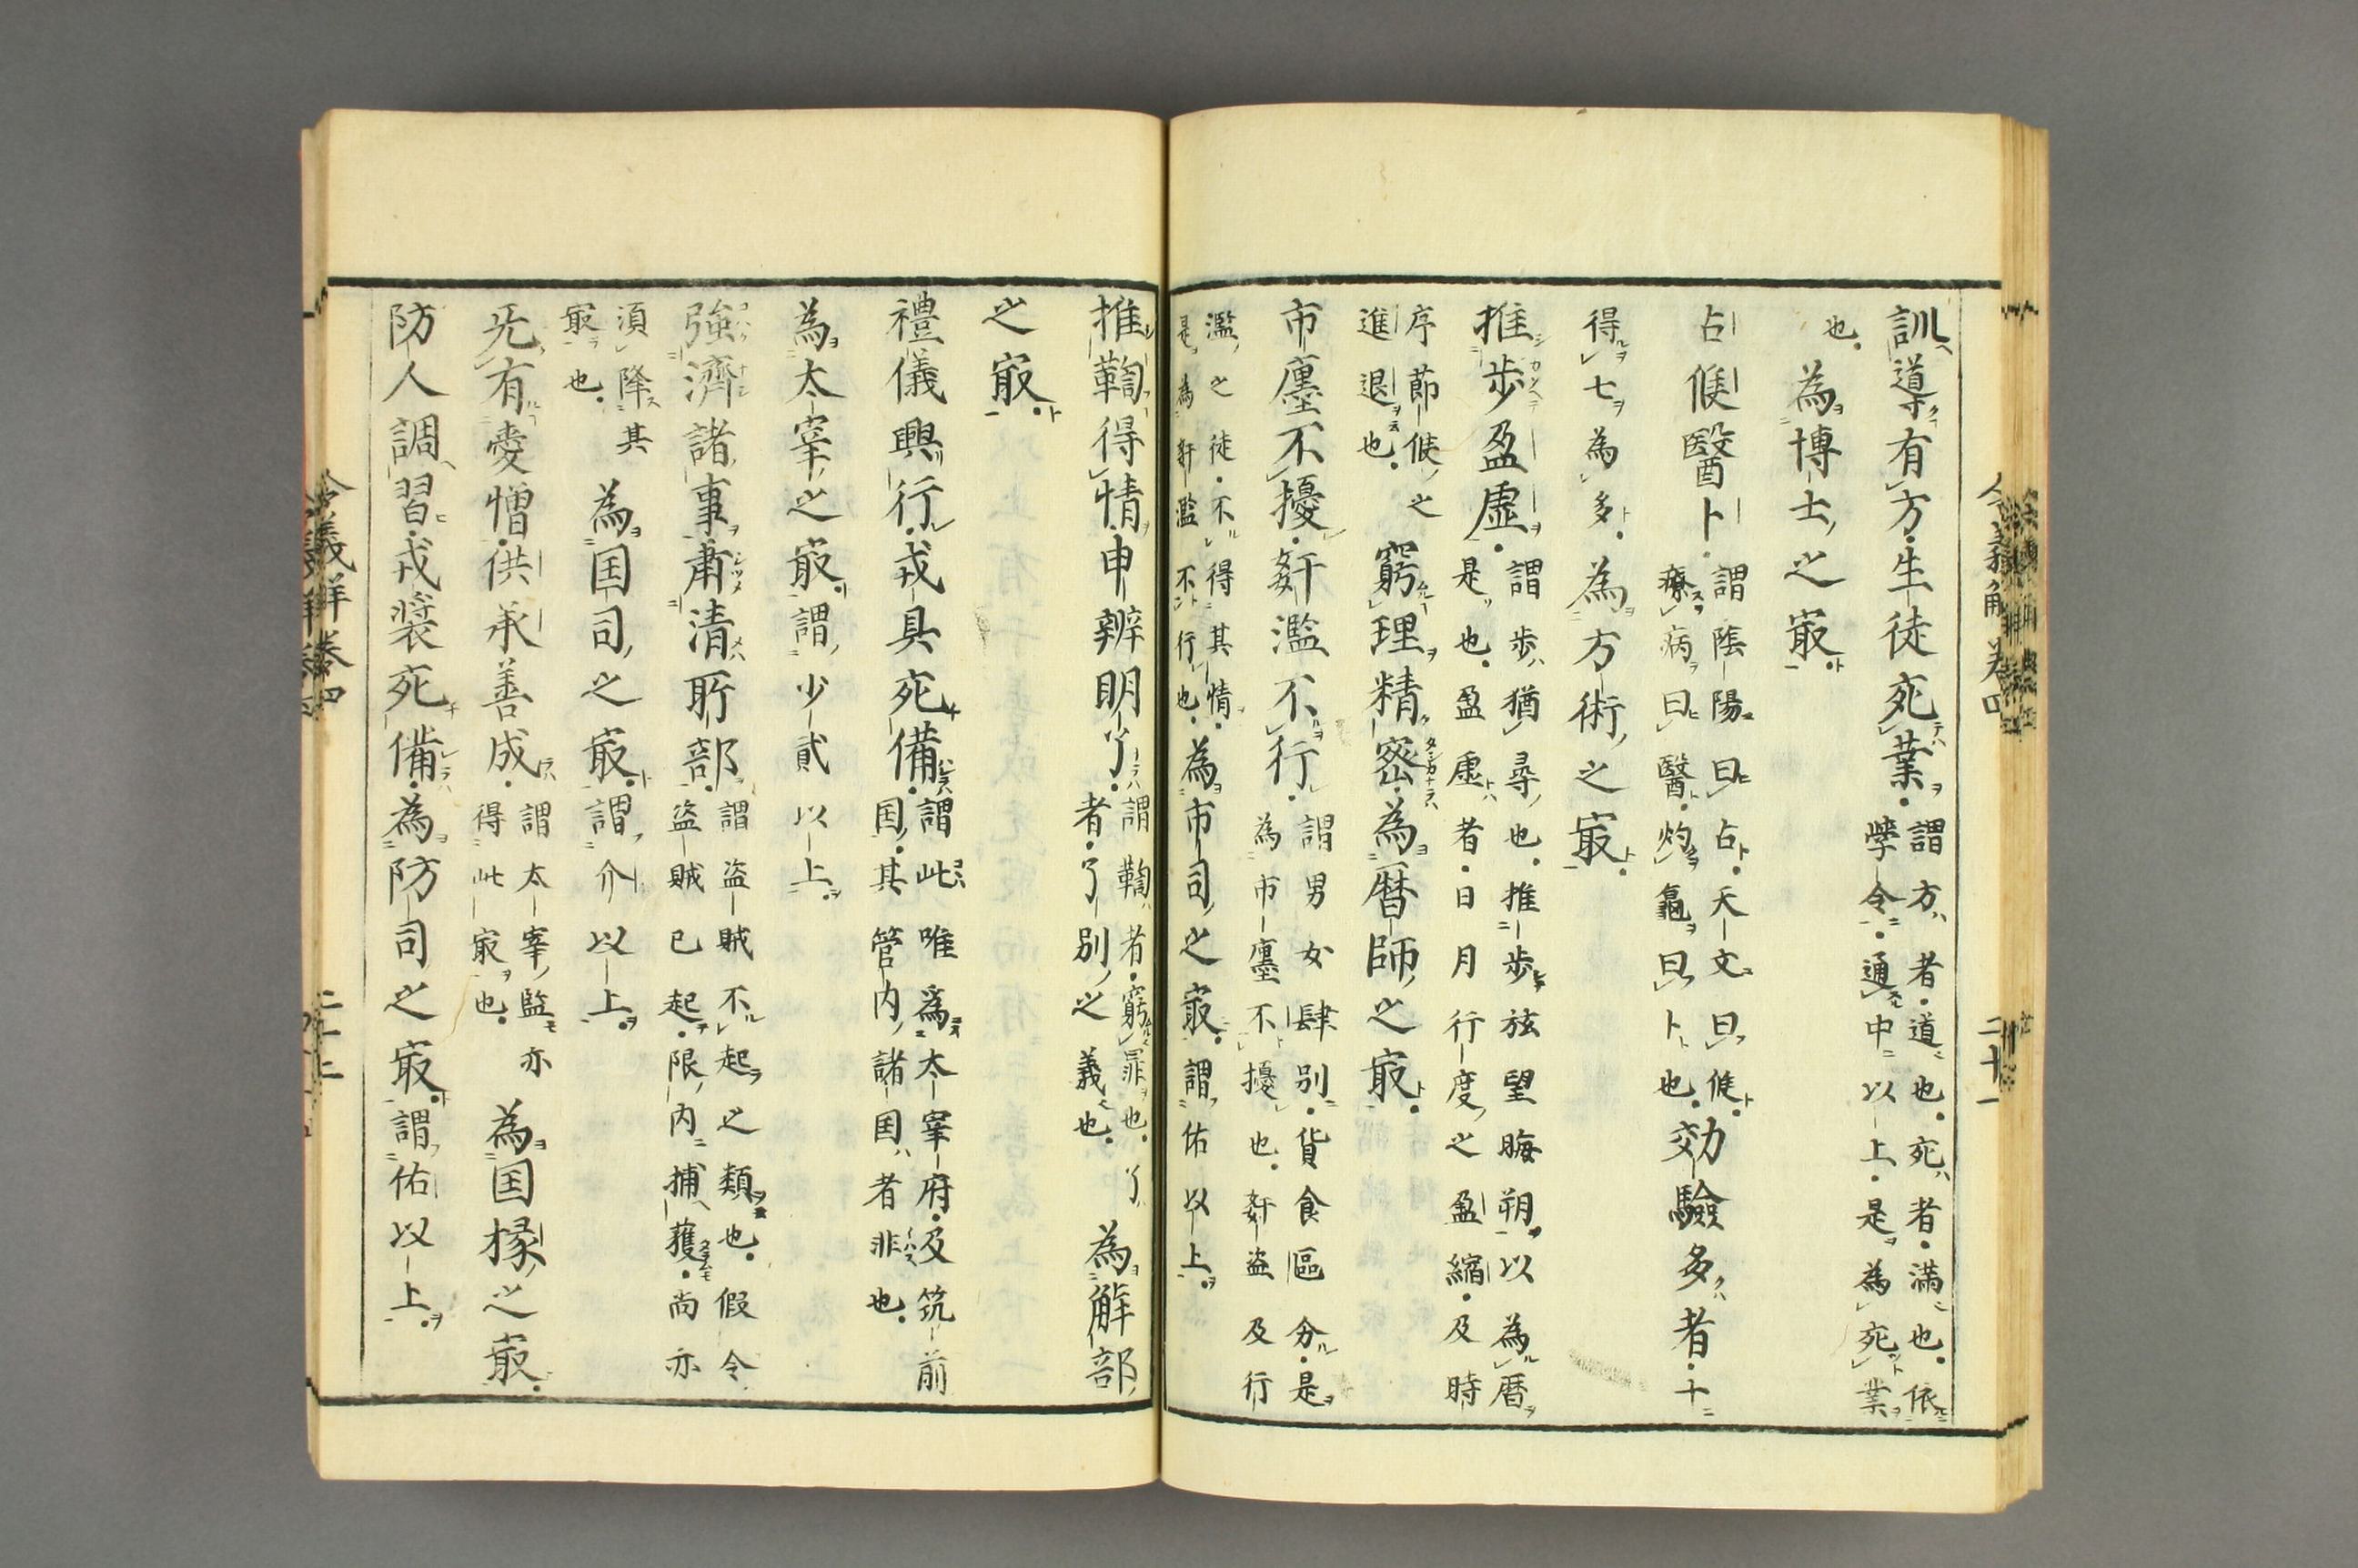 訓導有方生徒充業謂方者道也充者満也依學令通中以上是為充業
也為博士之㝡
占候醫卜謂陰陽曰占天文曰候療病曰醫灼龜曰卜也効驗多者十
得七為多為方術之㝡
推歩盈虚謂歩猶尋也推歩弦望晦朔以為暦是也盈虚者日月行度之盈縮及時
序節候之進退也窮理精密為暦師之㝡
市廛不擾姧濫不行謂男女肆別貨食區分是為市廛不擾也姧盗及行
濫之徒不得其情是為姧濫不行也為市司之㝡謂佑以上
推鞫得情申辨明了謂鞫者窮罪也了者了別之義也為解部
之㝡
禮儀興行戎具充備謂此唯為太宰府及筑前国其管内諸国者非也
為太宰之㝡謂少貳以上
強濟諸事肅清所部謂盗賊不起之類也假令盗賊已起限内捕獲尚亦
須降其㝡也為国司之㝡謂介以上
无有愛憎供承善成謂太宰監亦得此㝡也為国掾之㝡
防人調習戎装充備為防司之㝡謂佑以上